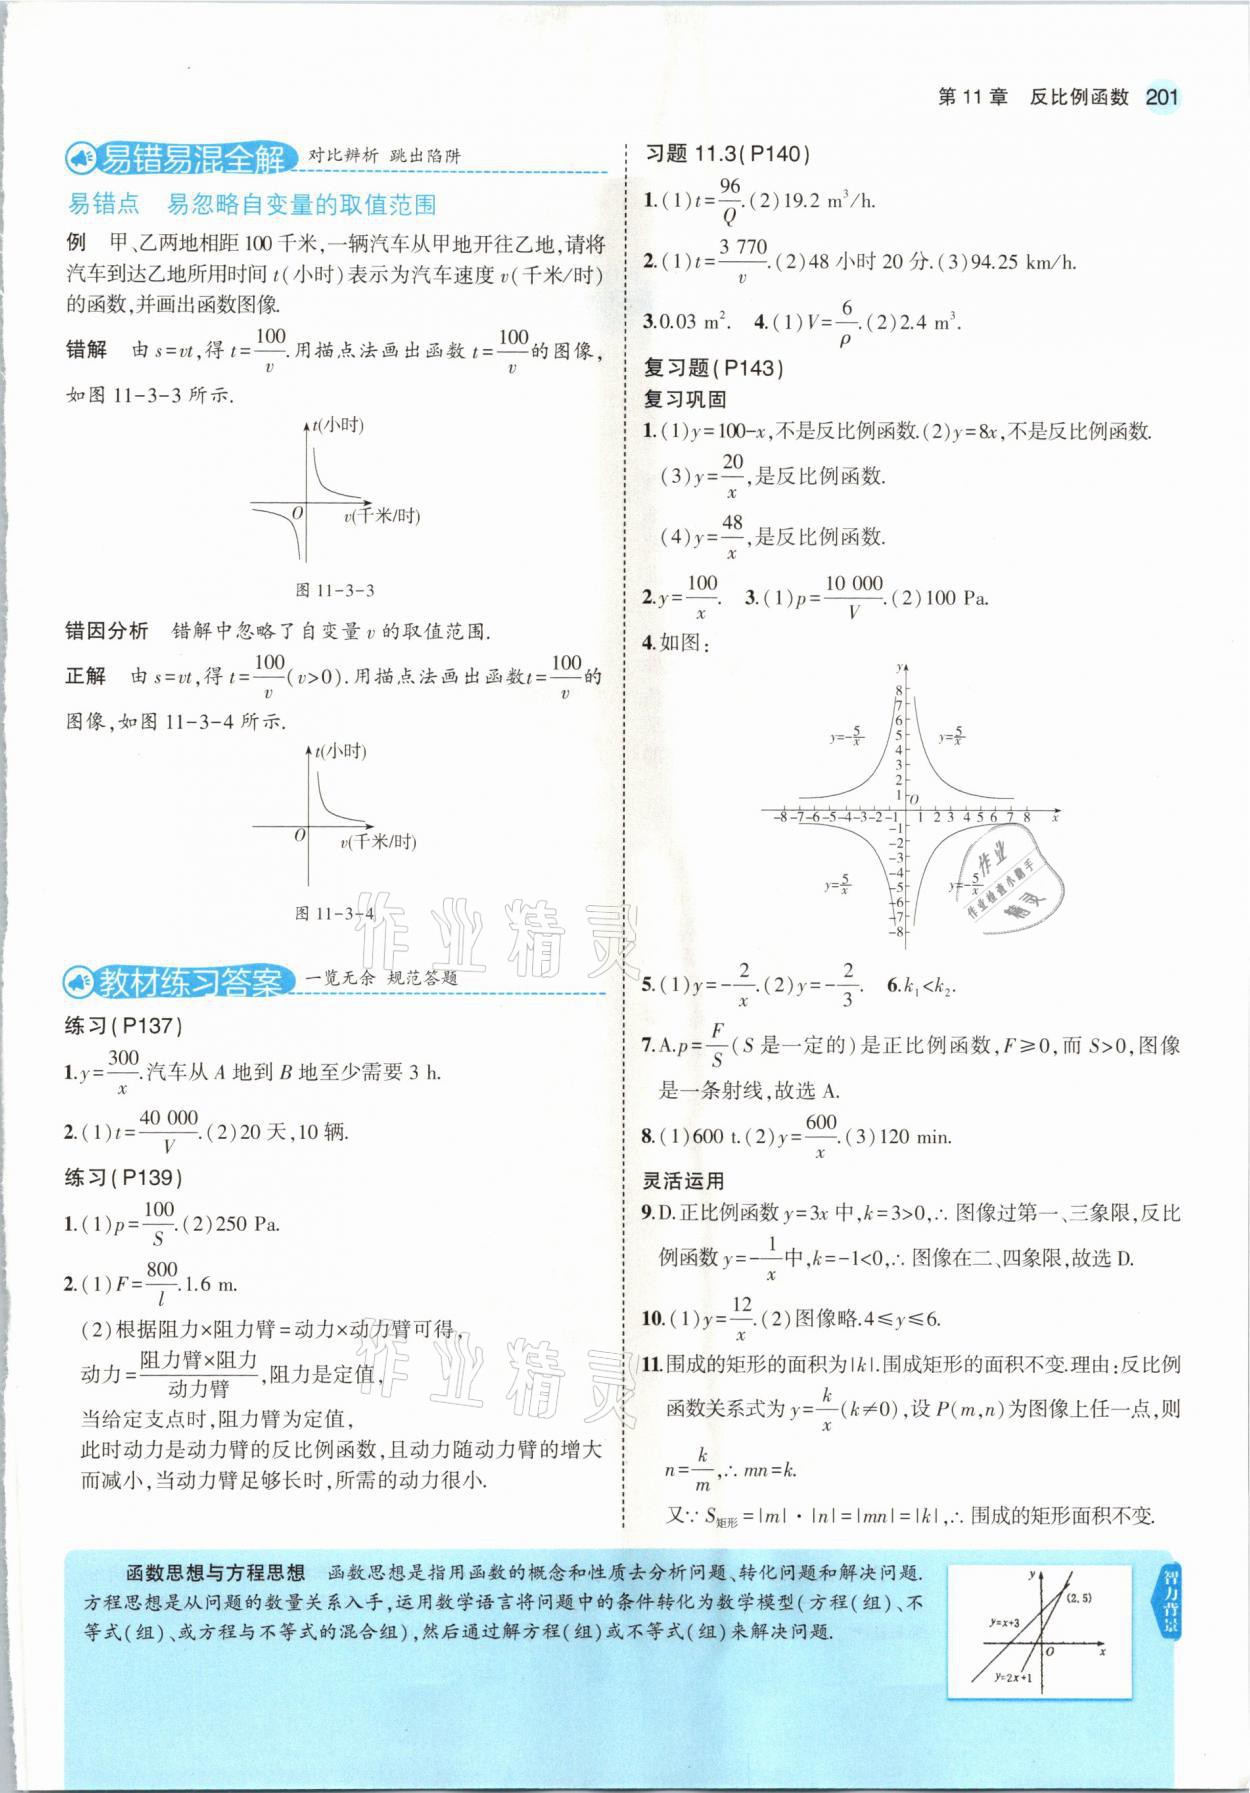 第 11 章 反比例函数 201
易错易混全解 对比辨析 跳出陷阱
易错点 易忽略自变量的取值范围
例 甲、乙两地相距 100 千米,一辆汽车从甲地开往乙地,请将
汽车到达乙地所用时间 t(小时)表示为汽车速度 v(千米/时)
的函数,并画出函数图像.
错解 由 s=vt,得 t=100/v.用描点法画出函数 t=100/v的图像,
如图 11-3-3 所示.
t(小时)
O v(千米/时)
图 11-3-3
错因分析 错解中忽略了自变量 v 的取值范围.
正解 由 s=vt,得 t=100/v(v>0).用描点法画出函数t=100/v的
图像,如图 11-3-4 所示.
t(小时)
O v(千米/时)
图 11-3-4
教材练习答案 一览无余 规范答题
练习(P137)
1.y=300/x.汽车从 A 地到 B 地至少需要 3 h.
2.(1)t=40 000/V.(2)20 天,10 辆.
练习(P139)
1.(1)p=100/S.(2)250 Pa.
2.(1)F=800/l.1.6 m.
(2)根据阻力×阻力臂=动力×动力臂可得,
动力=阻力臂×阻力/动力臂,阻力是定值,
当给定支点时,阻力臂为定值,
此时动力是动力臂的反比例函数,且动力随动力臂的增大
而减小,当动力臂足够长时,所需的动力很小.
习题 11.3(P140)
1.(1)t=96/Q.(2)19.2 m³/h.
2.(1)t=3 770/v.(2)48 小时 20 分.(3)94.25 km/h.
3.0.03 m². 4.(1)V=6/ρ.(2)2.4 m³.
复习题(P143)
复习巩固
1.(1)y=100-x,不是反比例函数.(2)y=8x,不是反比例函数.
(3)y=20/x,是反比例函数.
(4)y=48/x,是反比例函数.
2.y=100/x. 3.(1)p=10 000/V.(2)100 Pa.
4.如图:
y
8
7
6
5
4
3
2
1
y=-5/x y=5/x
O
-8-7-6-5-4-3-2-1 1 2 3 4 5 6 7 8 x
-1
-2
-3
-4
-5
-6
-7
-8
y=5/x y=-5/x
作业
作业检查小助手
精灵
5.(1)y=-2/x.(2)y=-2/3. 6.k₁<k₂.
7.A.p=F/S(S 是一定的)是正比例函数,F≥0,而 S>0,图像
是一条射线,故选 A.
8.(1)600 t.(2)y=600/x.(3)120 min.
灵活运用
9.D.正比例函数 y=3x 中,k=3>0,∴图像过第一、三象限,反比
例函数 y=-1/x中,k=-1<0,∴图像在二、四象限,故选 D.
10.(1)y=12/x.(2)图像略.4≤y≤6.
11.围成的矩形的面积为|k|.围成矩形的面积不变.理由:反比例
函数关系式为 y=k/x(k≠0),设 P(m,n)为图像上任一点,则
n=k/m,∴mn=k.
又∵S矩形=|m|·|n|=|mn|=|k|,∴围成的矩形面积不变.
作业精灵
作业精灵
函数思想与方程思想 函数思想是指用函数的概念和性质去分析问题、转化问题和解决问题.
方程思想是从问题的数量关系入手,运用数学语言将问题中的条件转化为数学模型(方程(组)、不
等式(组)、或方程与不等式的混合组),然后通过解方程(组)或不等式(组)来解决问题.
y
(2,5)
y=x+3
O x
y=2x+1
智力背景